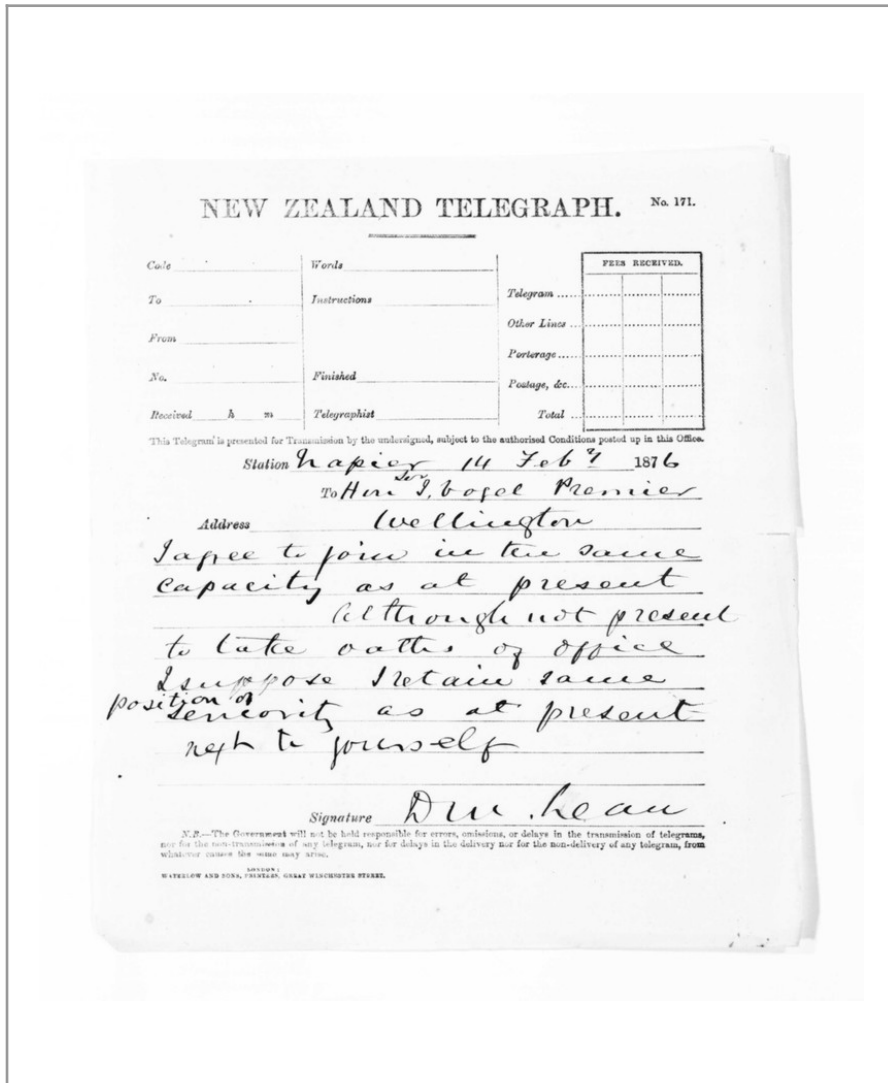 NEW ZEALAND TELEGRAPH. No. 171.
Code Words FEES RECEIVED.
To Instructions Telegram
Other Lines
From
Porterage
No. Finished Postage, &c.
Received h m Telegraphist Total
This Telegram is presented for Transmission by the undersigned, subject to the authorised Conditions posted up in this Office.
Station Napier 14 Feby 1876
To Hon Sir J. Vogel Premier
Address Wellington
I agree to join in the same
capacity as at present
although not present
to take oaths of office
I suppose I retain same
position of seniority as at present
next to yourself
Signature D McLean
N.B.—The Government will not be held responsible for errors, omissions, or delays in the transmission of telegrams,
nor for the non-transmission of any telegram, nor for delays in the delivery nor for the non-delivery of any telegram, from
whatever causes the same may arise.
LONDON:
WATERLOW AND SONS, PRINTERS, GREAT WINCHESTER STREET.